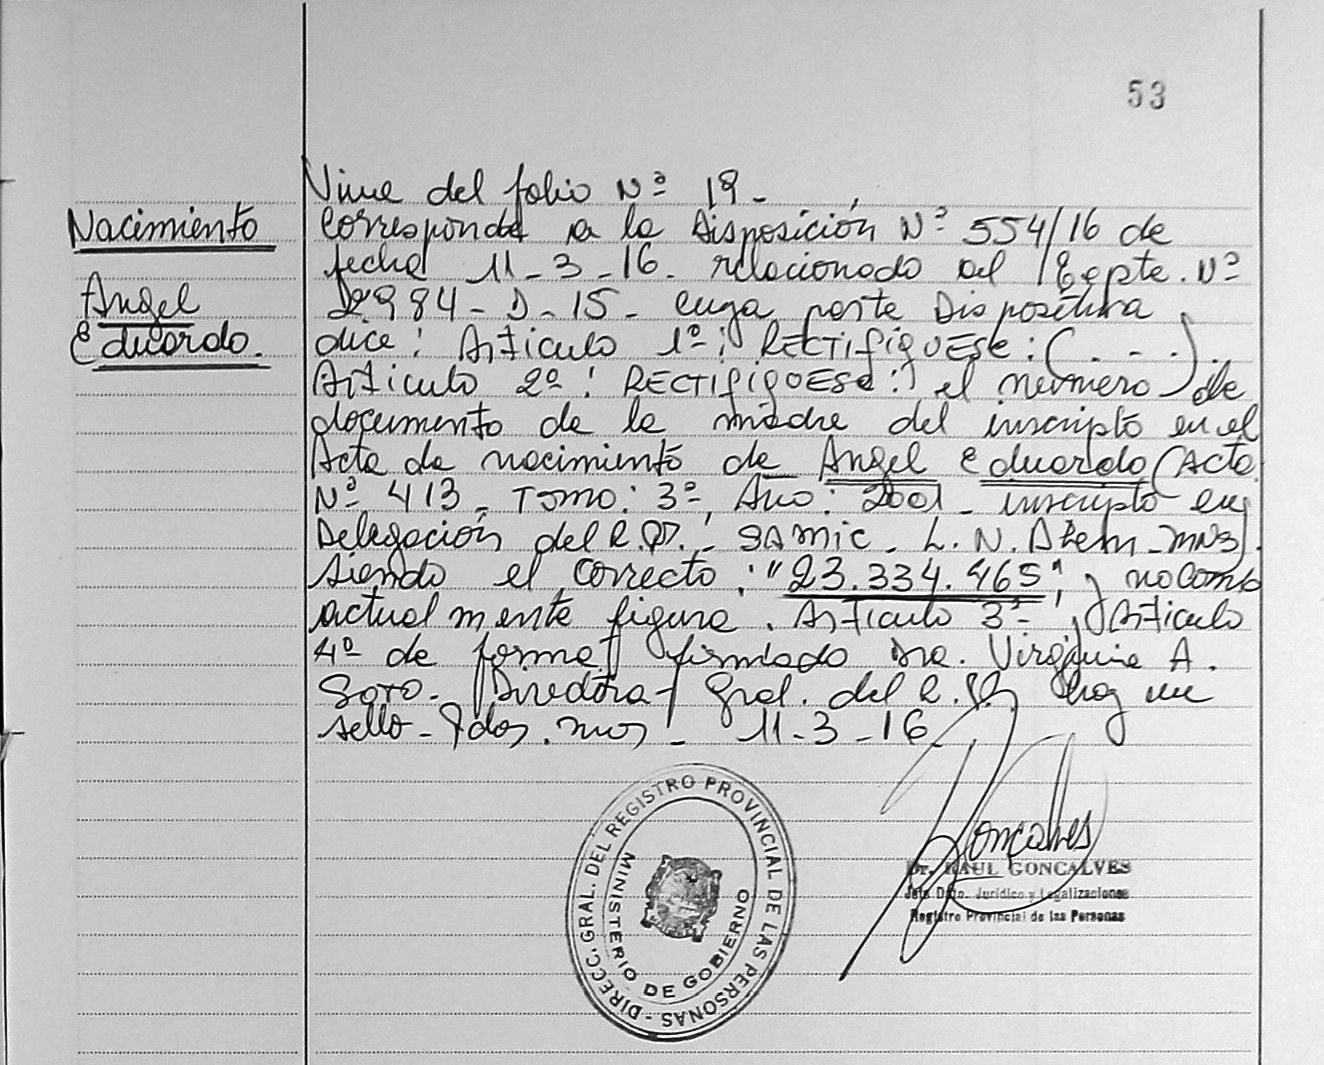 53
Viene del folio Nº 19.-
Nacimiento
Corresponde a la Disposición Nº 554/16 de
fecha 11-3-16. relacionado al Expte. Nº
Angel
Eduardo.
2984-D-15- cuya parte Dispositiva
dice: Artículo 1º: RECTIFIQUESE: (...).
Artículo 2º: RECTIFIQUESE: el número de
documento de la madre del inscripto en el
Acta de nacimiento de Angel Eduardo (Acta
Nº 413, Tomo: 3º, Año: 2001 - inscripto en
Delegación del R.P. - SAMIC - L. N. Alem - Mns)
siendo el correcto: "23.334.465" y no como
actualmente figura. Artículo 3º y Artículo
4º de forma firmado Dra. Virginia A.
Soto. Directora Gral. del R.P. hay un
sello - Pdas. Mns - 11-3-16
DIRECC. GRAL. DEL REGISTRO PROVINCIAL DE LAS PERSONAS -
MINISTERIO DE GOBIERNO
Goncalves
Dr. RAUL GONCALVES
Jefe Dpto. Jurídico y Legalizaciones
Registro Provincial de las Personas